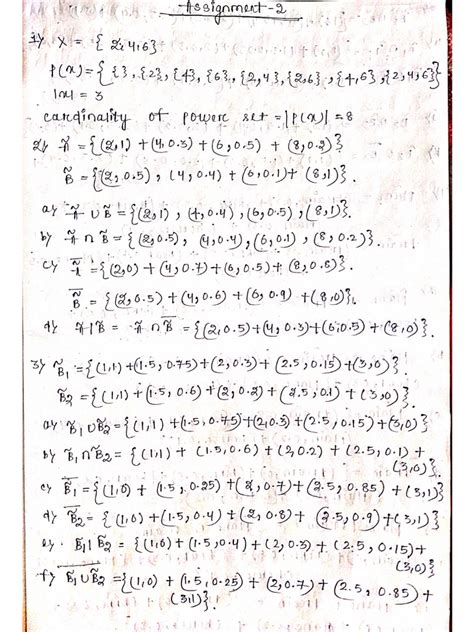 Assignment-2
1) X = { 2,4,6}
P(x) = { { }, {2}, {4}, {6}, {2,4}, {2,6}, {4,6}, {2,4,6}}
|x| = 3
cardinality of power set = |P(x)| = 8
2) Ã = {(2,1) + (4,0.3) + (6,0.5) + (8,0.2)}
B̃ = {(2,0.5), (4,0.4) + (6,0.1) + (8,1)}.
a) Ã ∪ B̃ = {(2,1), (4,0.4), (6,0.5), (8,1)}.
b) Ã ∩ B̃ = {(2,0.5), (4,0.4), (6,0.1), (8,0.2)}.
c) Ã̅ = {(2,0) + (4,0.7) + (6,0.5) + (8,0.8)}.
B̃̅ = {(2,0.5) + (4,0.6) + (6,0.9) + (8,0)}.
d) A|B = A ∩ B̅ = {(2,0.5)+(4,0.3)+(6,0.5) + (8,0)}.
3) B̃1 = {(1,1)+(1.5,0.75)+(2,0.3) + (2.5,0.15)+(3,0)}
B̃2 = {(1,1) + (1.5,0.6)+(2,0.2) + (2.5,0.1) + (3,0)}
a) B̃1 ∪ B̃2 = {(1,1) + (1.5,0.75)+(2,0.3)+(2.5,0.15)+(3,0)}
b) B̃1 ∩ B̃2 = {(1,1) + (1.5,0.6) + (2,0.2) + (2.5,0.1) +
(3,0)}.
c) B̃1̅ = {(1,0) + (1.5,0.25) + (2,0.7)+(2.5,0.85) + (3,1)}
d) B̃2̅ = {(1,0) + (1.5,0.4) + (2,0.8) + (2.5,0.9) + (3,1)}
e) B̃1|B̃2 = {(1,0) + (1.5,0.4) + (2,0.3) + (2.5,0.15)+
(3,0)}
f) B̃1 ∪ B̃2̅ = {(1,0) + (1.5,0.25) + (2,0.7) + (2.5,0.85) +
(3,1)}.